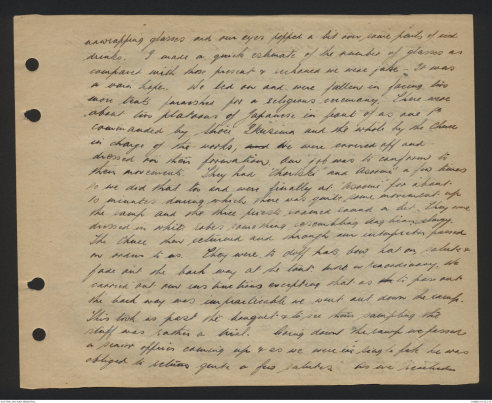 unwrapping glasses and our eyes popped a bit over some pints of red
drinks. I made a quick estimate of the number of glasses as
compared with those present & reckoned we were jake - It was
a vain hope. We led on and were fallen in facing two
more tents furnished for a religious ceremony. There were
about two platoons of Japanese in front of us one
commanded by "Shoii" and the whole by the Chuee
in charge of the works, we were covered off and
dressed on their formation, our job was to conform to
their movements. They had "Kiotski" and "Yasumi" a few times
so we did that too and were finally at "Yasumi" for about
10 minutes during which there was quite some movement up
the camp and the three priests roamed around a bit. They were
dressed in white robes something resembling
The Chuee then returned and through our interpreter passed
on orders to us. They were to doff hats, bow, hat on, salute &
fade out the back way at the tent. Most extraordinary. We
carried out our instructions excepting that as to pass out
the back way was impracticable we went out down the camp.
This took us past the banquet & to see them sampling the
stuff was rather a trial. Going down the camp we passed
a senior officer coming up & as we were in twos to file he was
obliged to return quite a few salutes. As we reached